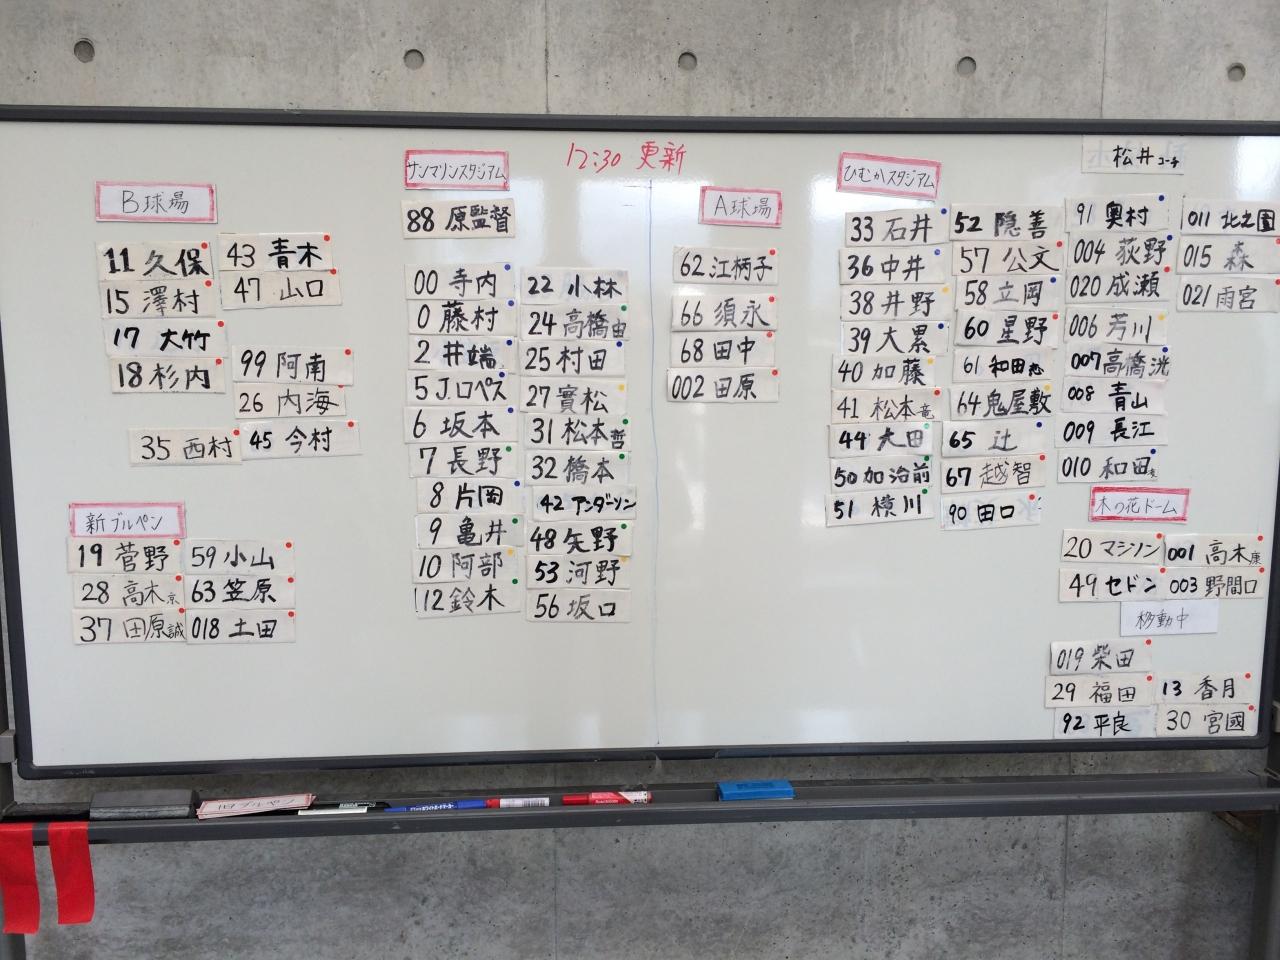 12:30 更新
B球場
11 久保
43 青木
15 澤村
47 山口
17 大竹
18 杉内
99 阿南
26 内海
35 西村
45 今村
新ブルペン
19 菅野
59 小山
28 高木京
63 笠原
37 田原誠
018 土田
サンマリンスタジアム
88 原監督
00 寺内
22 小林
0 藤村
24 高橋由
2 井端
25 村田
5 J.ロペス
27 實松
6 坂本
31 松本哲
7 長野
32 橋本
8 片岡
42 アンダーソン
9 亀井
48 矢野
10 阿部
53 河野
112 鈴木
56 坂口
A球場
62 江柄子
66 須永
68 田中
002 田原
ひむかスタジアム
松井コーチ
33 石井
52 隠善
91 奥村
011 北之園
36 中井
57 公文
004 荻野
015 森
38 井野
58 立岡
020 成瀬
021 雨宮
39 大累
60 星野
006 芳川
40 加藤
61 和田恋
007 高橋洸
41 松本竜
64 鬼屋敷
008 青山
44 大田
65 辻
009 長江
50 加治前
67 越智
010 和田
51 横川
90 田口
木の花ドーム
20 マシソン
001 高木康
49 セドン
003 野間口
移動中
019 柴田
29 福田
13 香月
92 平良
30 宮國
旧ブルペン